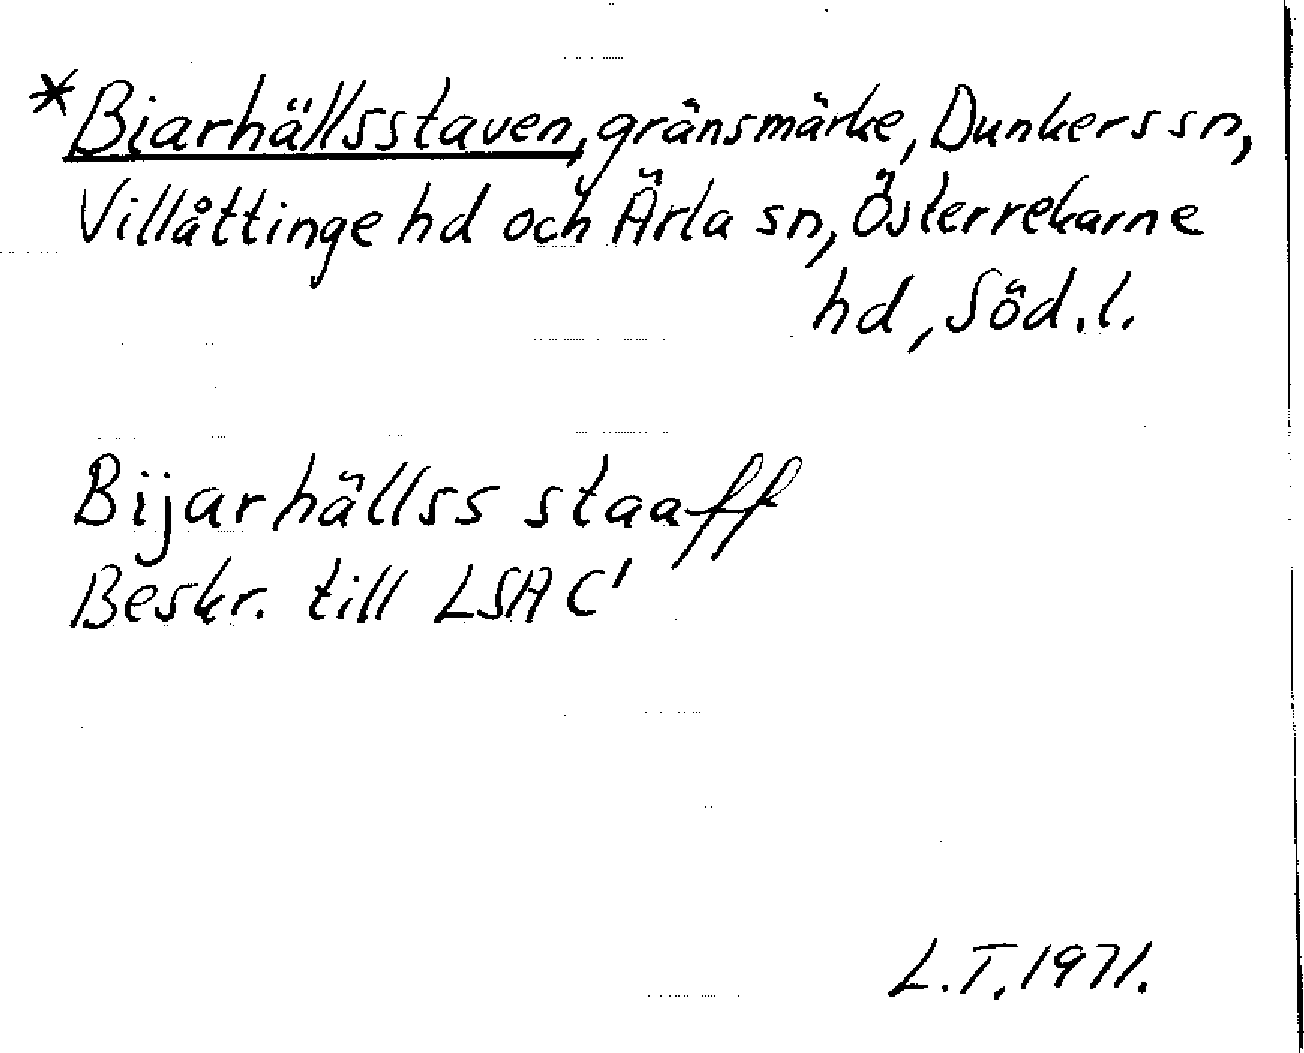 *Biarhällsstaven, gränsmärke, Dunkers sn,
Villåttinge hd och Ärla sn, Österrekarne
hd, Söd. l.
Bijarhällss staaff
Beskr. till LSA C'
L.T. 1971.